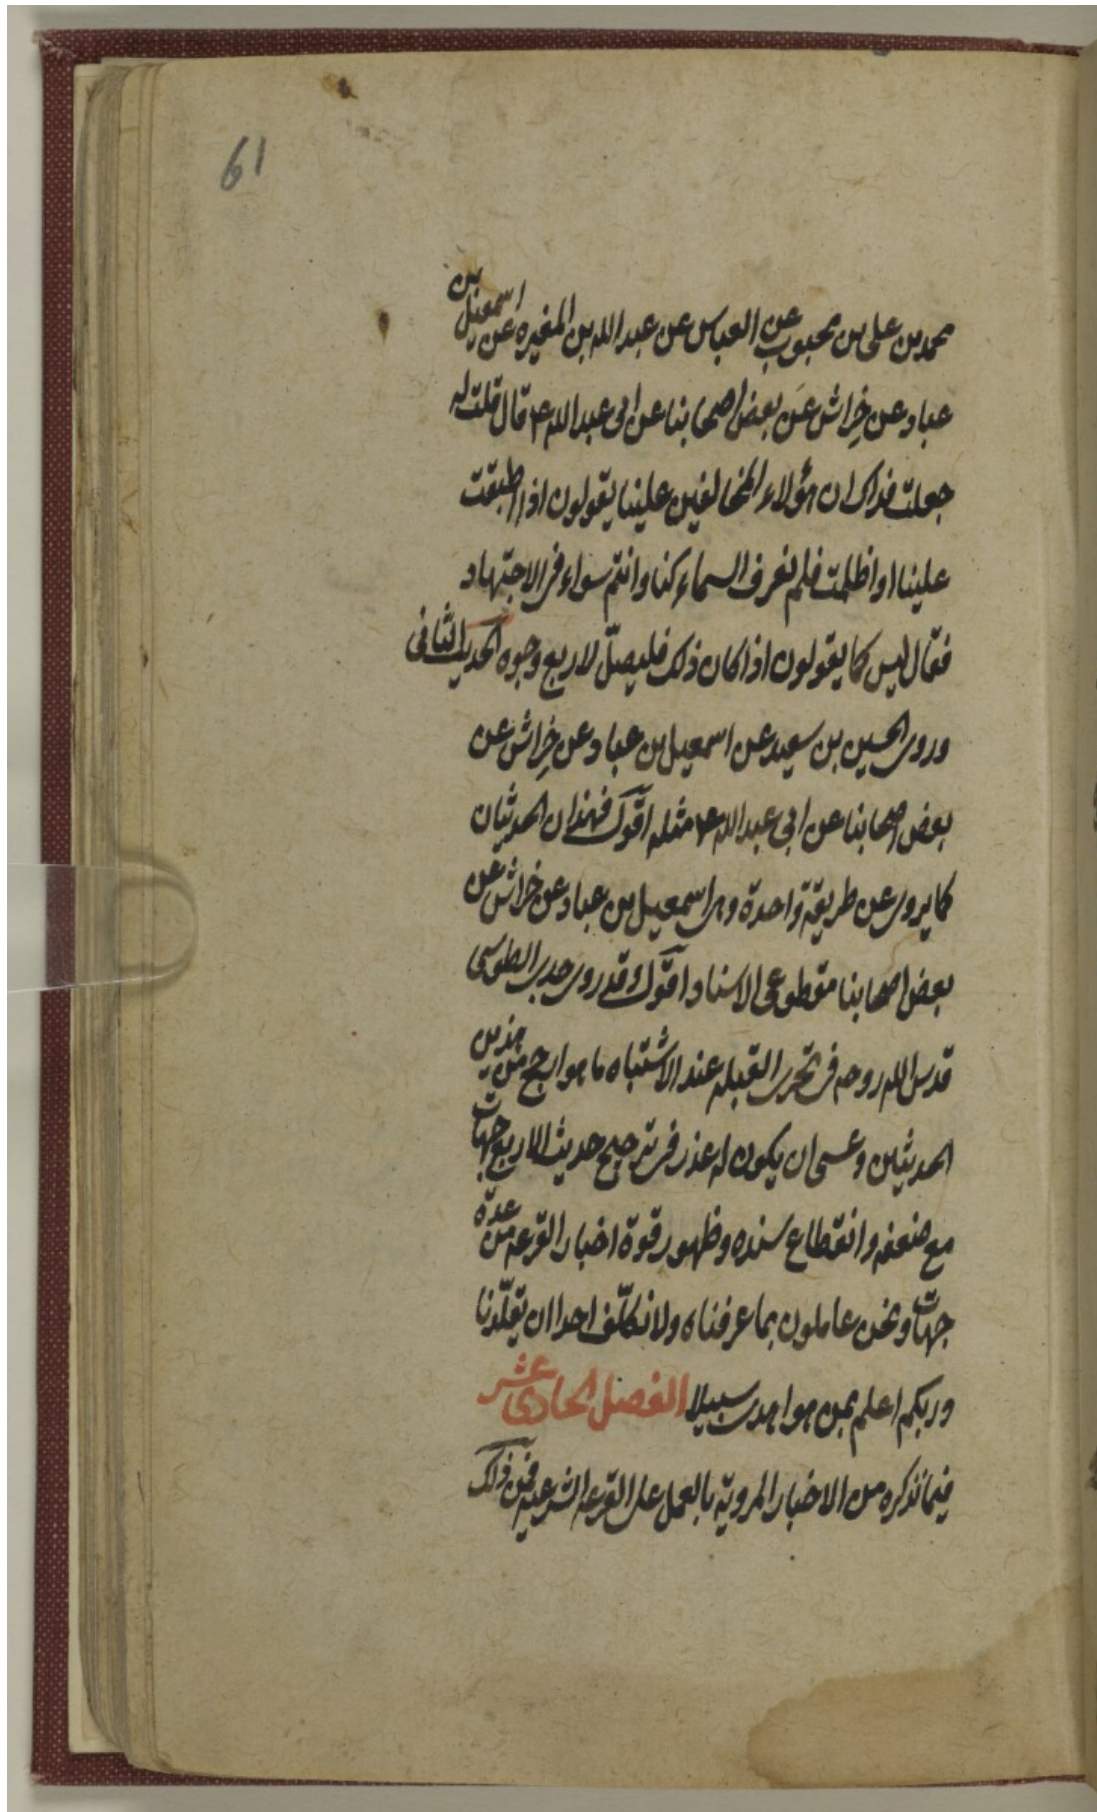 61
محمد بن علی بن محبوب عن العباس عن عبد الله بن المغیره عن اسمعیل بن
عباد عن خِراش عَن بعض اصحابنا عن ابی عبد الله ع قال قلت له
جعلت فداک ان هؤلاء المخالفین علینا یقولون اذا اطبقت
علینا او اظلمت فلم نعرف السماء کنا وانتم سواء فی الاجتهاد
فقال لیس کما یقولون اذا کان ذلک فلیصلّ لاربع وجوه الحدیث الثانی
وروی الحسین بن سعید عن اسمعیل بن عباد عن خِراش عن
بعض اصحابنا عن ابی عبد الله ع مثله اقول فهذان الحدیثان
کما یروی عن طریقة واحدة وهی اسمعیل بن عباد عن خراش عن
بعض اصحابنا مقطوعی الاسناد اقول وقد روی جدی الطوسی
قدس الله روحه فی تحری القبله عند الاشتباه ما هو ارجح من هذین
الحدیثین وعسی ان یکون له عذر فی ترجیح حدیث الاربع جهات
مع ضعفه وانقطاع سنده وظهور قوة اخبار القرعه من عدّة
جهات ونحن عاملون بما عرفناه ولا نکلّف احدا ان یقلّدنا
وربکم اعلم بمن هو اهدی سبیلا الفصل الحادی عشر
فیما نذکره من الاخبار المرویّه بالعمل علی القرعه الشرعیه فمن ذلک